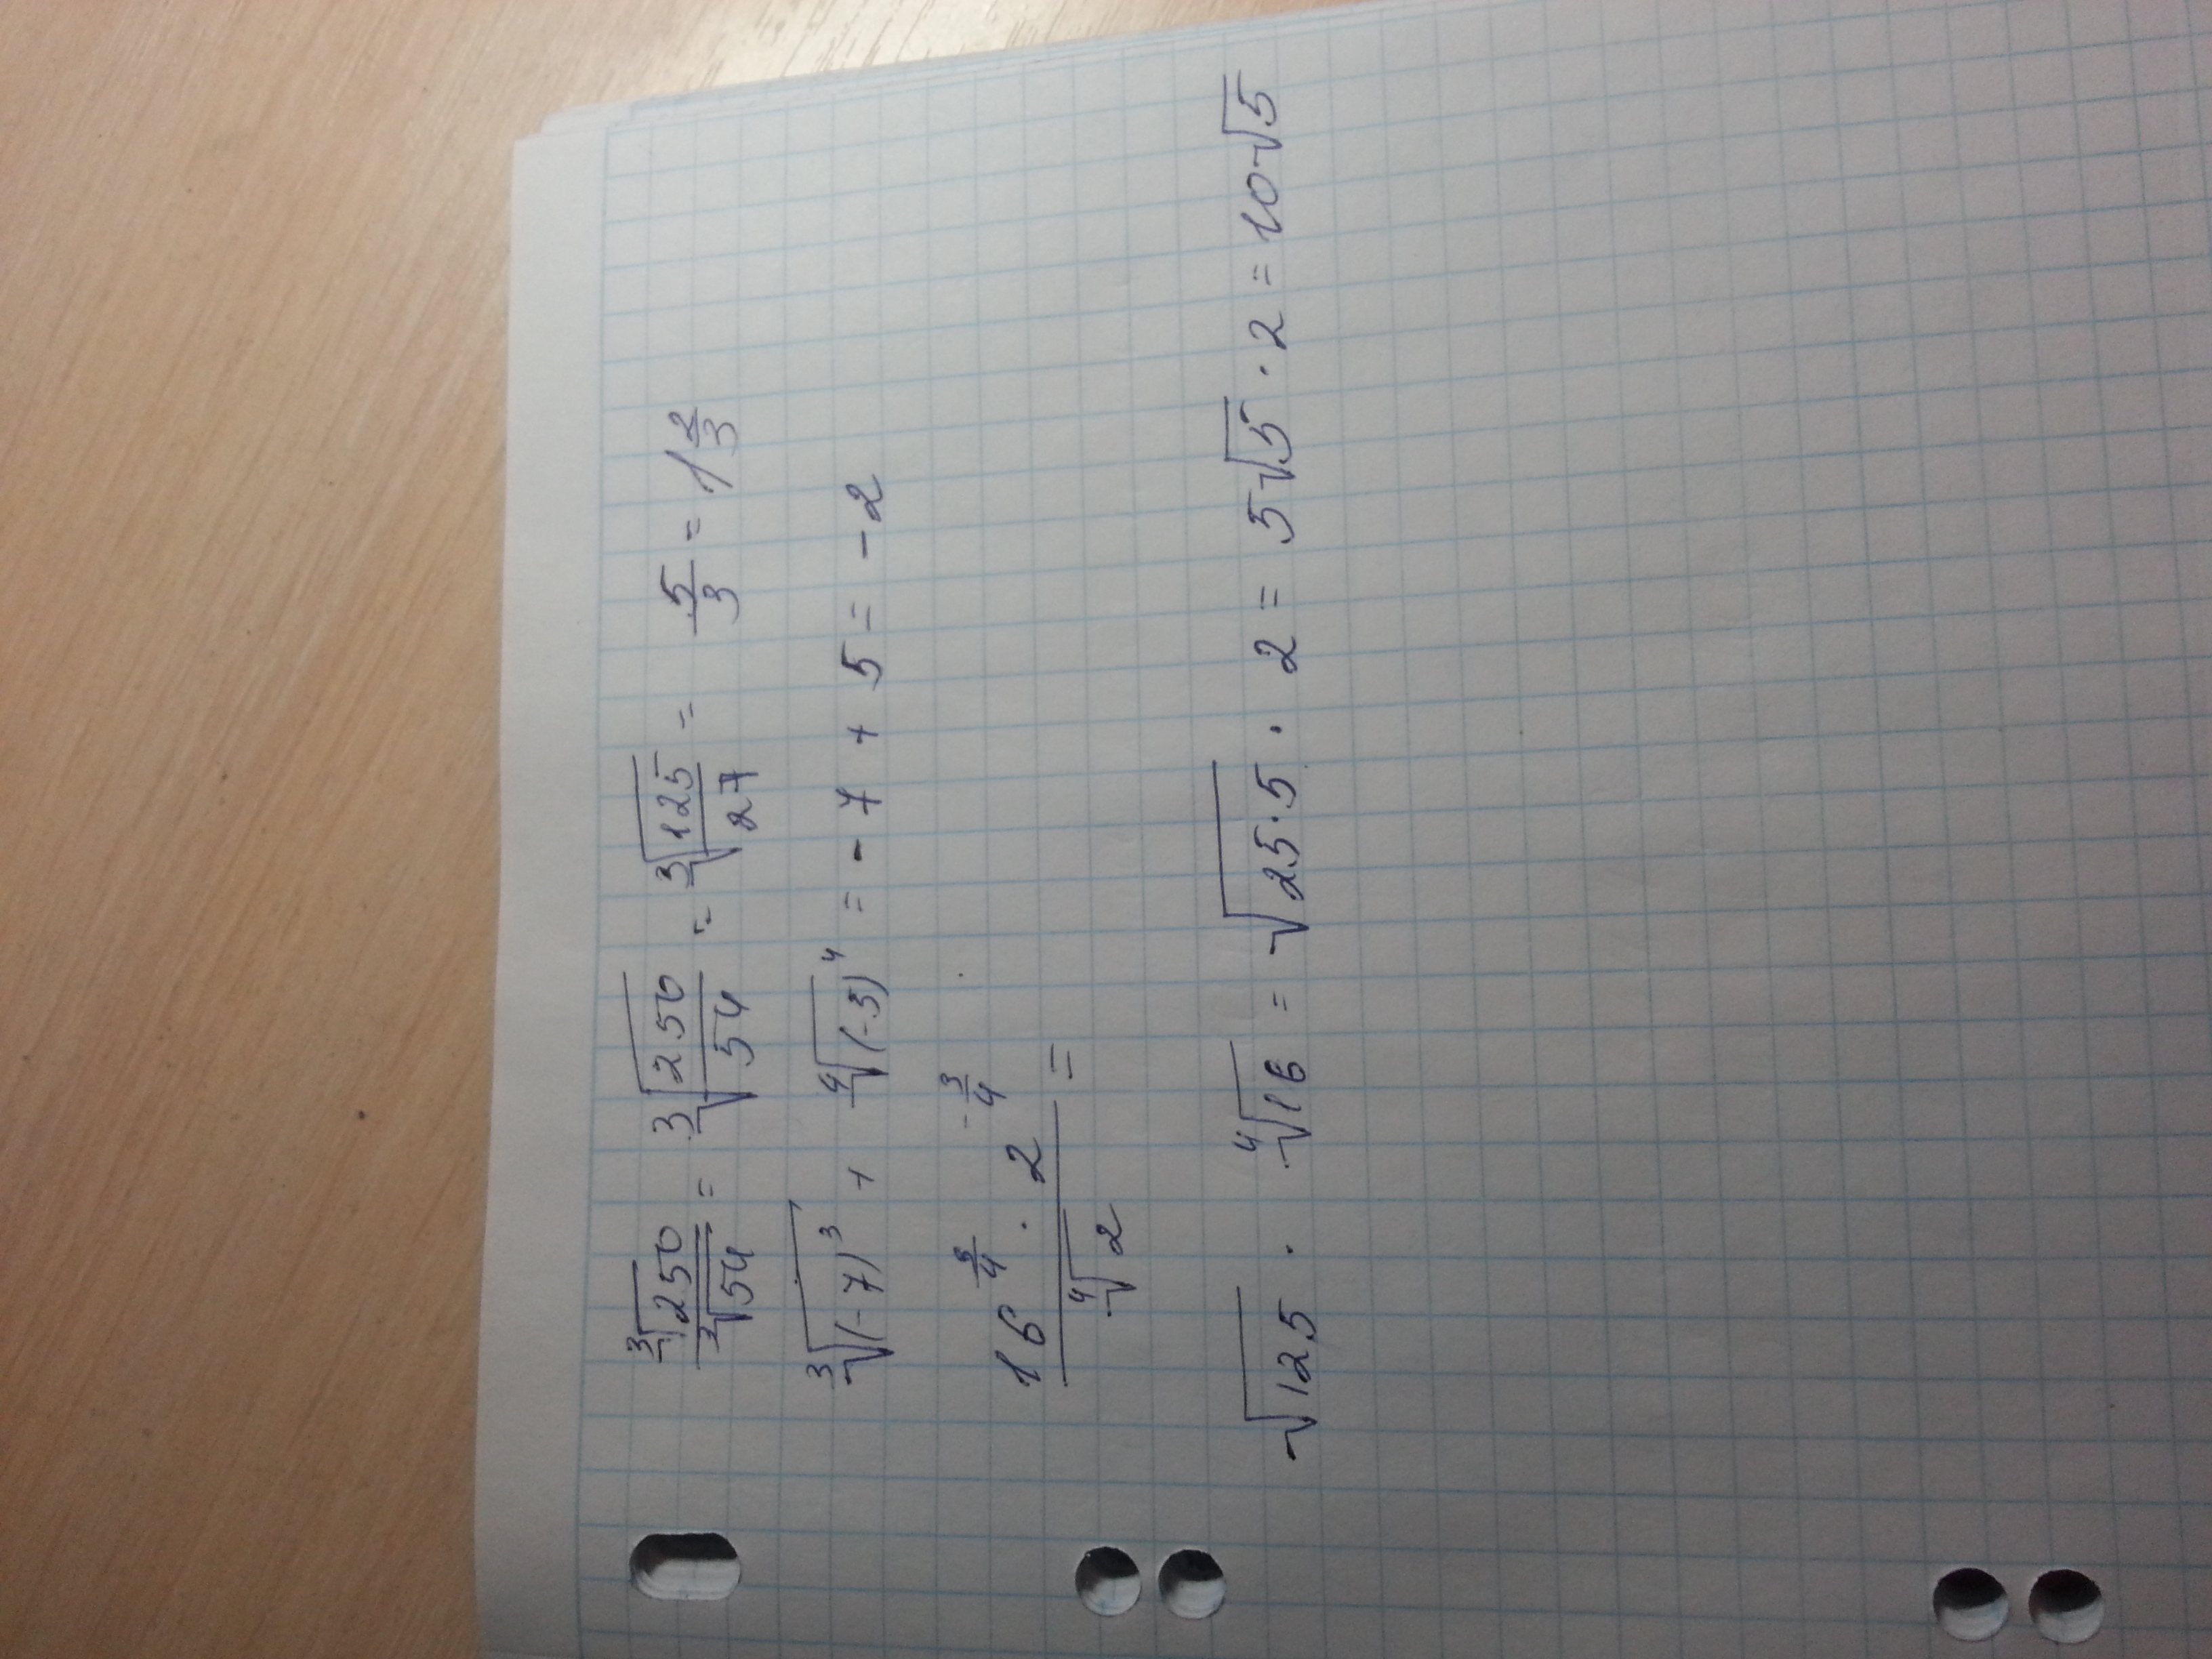 ∛250/∛54 = ∛(250/54) = ∛(125/27) = 5/3 = 1 2/3
∛(-7)³ + ∜(-5)⁴ = -7 + 5 = -2
(16^(3/4) · 2^(-3/4))/∜2 =
√125 · ∜16 = √(25·5) · 2 = 5√5 · 2 = 10√5